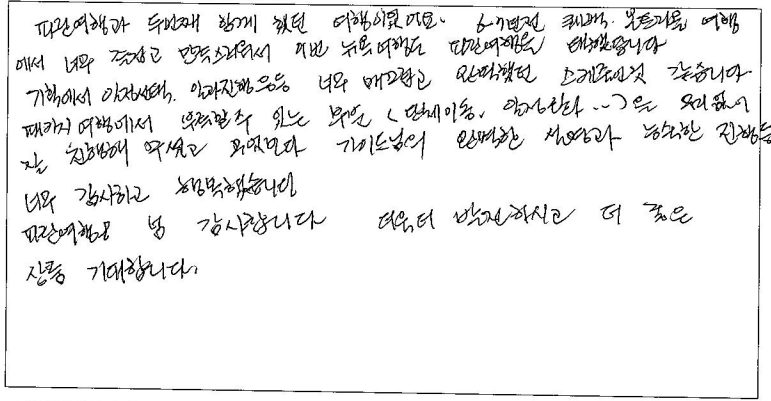 파란여행과 두번째 함께 했던 여행이였어요. 6~7년전 퀘백, 몬트리올 여행
에서 너무 좋았고 만족스러워서 이번 뉴욕여행도 파란여행을 택했습니다
기획에서 일정선택, 일과진행 등등 너무 매끄럽고 완벽했던 스케줄인것 같습니다.
패키지 여행에서 부족할 수 있는 부분 (단체이동, 일정 ...)을 무리없이
잘 진행해 주셨고 무엇보다 가이드님의 완벽한 설명과 능숙한 진행등
너무 감사하고 행복했습니다
파란여행 넘 감사합니다 더욱더 발전하시고 더 좋은
상품 기대합니다.